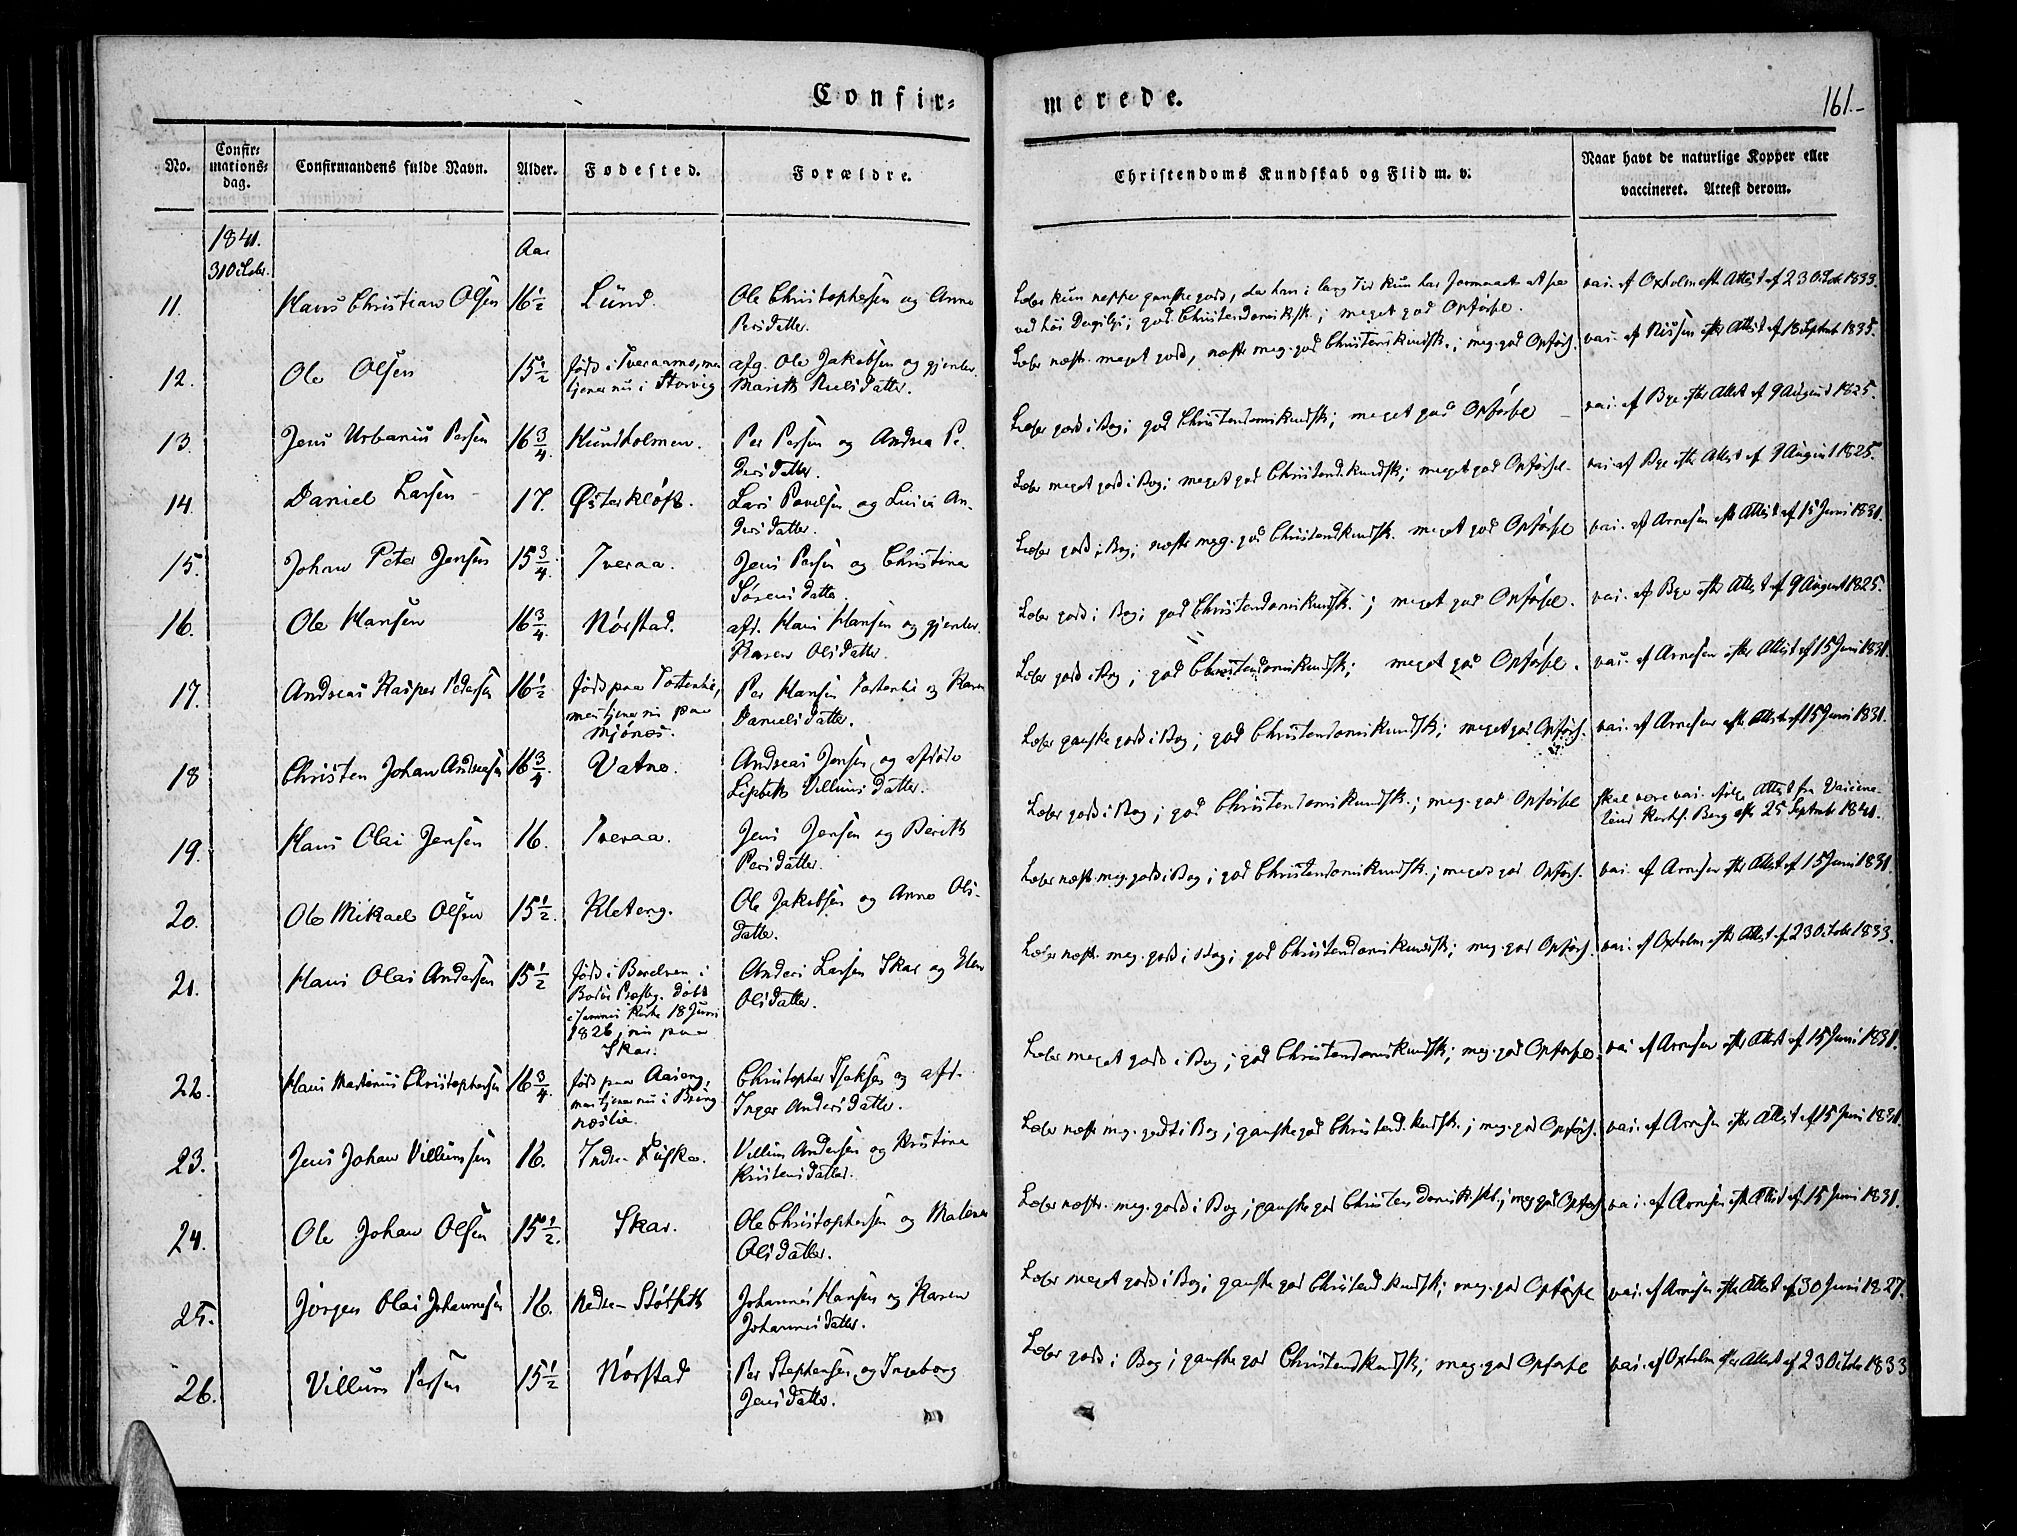 Confir=
merede.
161.-
No.
Confir=
mations=
dag.
Confirmandens fulde Navn.
Alder.
Fødested.
Forældre.
Christendoms Kundskab og Flid m. v:
Naar havt de naturlige Kopper eller
vaccineret. Attest derom.
1841.
3 Octobr.
Aar
11.
Hans Christian Olsen
16 1/2
Lund.
Ole Christophersen og Anne
Persdatter.
ved høi Dagslys; god Christendomsksk.; meget god Opførsel.
vac. af Oxholm eft. Attest af 23 Octob 1833.
12.
Ole Olsen
15 1/2
født i Tveraamo, men
tjener nu i Storvig
afg. Ole Jakobsen og gjenlev.
Marith Pulsdatter.
Læser næst. meget godt, næsten meg. god Christendskundsk.; meg. god Opførs.
vac. af Nissen efter Attest af 18 Septembr 1835.
13.
Jens Urbanus Persen
16 3/4
Hundholmen.
Per Persen og Andrea Pe-
dersdatter.
Læser godt i Bog; god Christendomskundsk; meget god Opførsel
vac. af Bye efter Attest af 9 August 1825.
14.
Daniel Larsen
17.
Østerkløft.
Lars Povelsen og Lucie An-
dersdatter.
Læser meget godt i Bog; meget god Christend.kundsk; meget god Opførsel.
vac. af Bye efter Attest af 9 August 1825.
15.
Johan Peter Jensen
15 3/4.
Tveraa.
Jens Persen og Christina
Sørensdatter.
Læser godt i Bog; næsten meg. god Christendkundsk. meget god Opførsel
vac. af Arnesen eft Attest af 15 Juni 1831.
16.
Ole Hansen
16 3/4.
Nørstad.
afd. Hans Hansen og gjenlev.
Karen Olsdatter.
Læser godt i Bog; god Christendomskundsk.; meget god Opførsel.
vac. af Bye efter Attest af 9 August 1825.
17.
Andreas Kasper Pedersen
16 1/2
født paa Tostenlie,
men tjener nu paa
Mjønæs.
Per Hansen Tostenlie og Karen
Danielsdatter.
Læser godt i Bog; god Christendomskundsk; meget god Opførsel.
vac. af Arnesen efter Attest af 15 Juni 1831.
18
Christen Johan Andreasen
16 3/4.
Vatne.
Andreas Jensen og afdøde
Lisbeth Villumsdatter.
Læser ganske godt i Bog; god Christendomskundsk; meget god Opførs.
vac. af Arnesen eft. Attest af 15 Juni 1831.
19.
Hans Olai Jensen
16.
Tveraa.
Jens Jensen og Berith
Persdatter.
Læser godt i Bog; god Christendomskundsk.; meg. god Opførsel
skal være vac. ifølge Attest fra Vaccine-
Berg efter 25 Septembr 1841.
20.
Ole Mikael Olsen
15 1/2.
Kleteng.
Ole Jakobsen og Anne Ols-
datter.
Læser næst. meg. godt i Bog; god Christendomskundsk.; meget god Opførs.
vac. af Arnesen efter Attest af 15 Juni 1831.
21.
Hans Olai Andersen
15 1/2
født i Beredven i
Bodøe Præstg. døbt
i sammes Kirke 18 Juni
1826, nu paa
Skar.
Anders Larsen Skar og Elen
Olsdatter.
Læser næst. meg. godt i Bog; god Christendomskundsk; meg. god Opførs.
vac. af Oxholm efter Attest af 23 Octobr 1833.
22.
Hans Martinus Christophersen
16 3/4.
født paa Aaseng,
men tjener nu i Bring
næslie.
Christopher Isaksen og afd.
Inger Andersdatter.
Læser meget godt i Bog; god Christendomskundsk; meg. god Opførsel.
vac. af Arnesen efter Attest af 15 Juni 1831.
23.
Jens Johan Villumsen
16.
Indre Fuske.
Villum Andersen og Kristina
Kristensdatter.
Læser næst meg. godt i Bog; ganske god Christend.kundsk.; meg. god Opførs.
vac. af Arnesen efter Attest af 15 Juni 1831.
24.
Ole Johan Olsen
15 1/2.
Skar.
Ole Christophersen og Malene
Olsdatter.
Læser næst. meg. godt i Bog; ganske god Christendomsksk.; meg god Opførs.
vac. af Arnesen eft Attest af 15 Juni 1831.
25.
Jørgen Olai Johannesen
16.
Nedre Støtseth
Johannes Hansen og Karen
Johannesdatter.
Læser meget godt i Bog; ganske god Christend.kundsk; meg. god Opførsel
vac. af Arnesen efter Attest af 30 Juni 1827.
26.
Villum Persen
15 1/2
Nørstad
Per Stephensen og Ingeborg
Jensdatter.
Læser godt i Bog; ganske god Christendskundsk; meg. god Opførsel
vac. af Oxholm efter Attest af 23 Octobr 1833